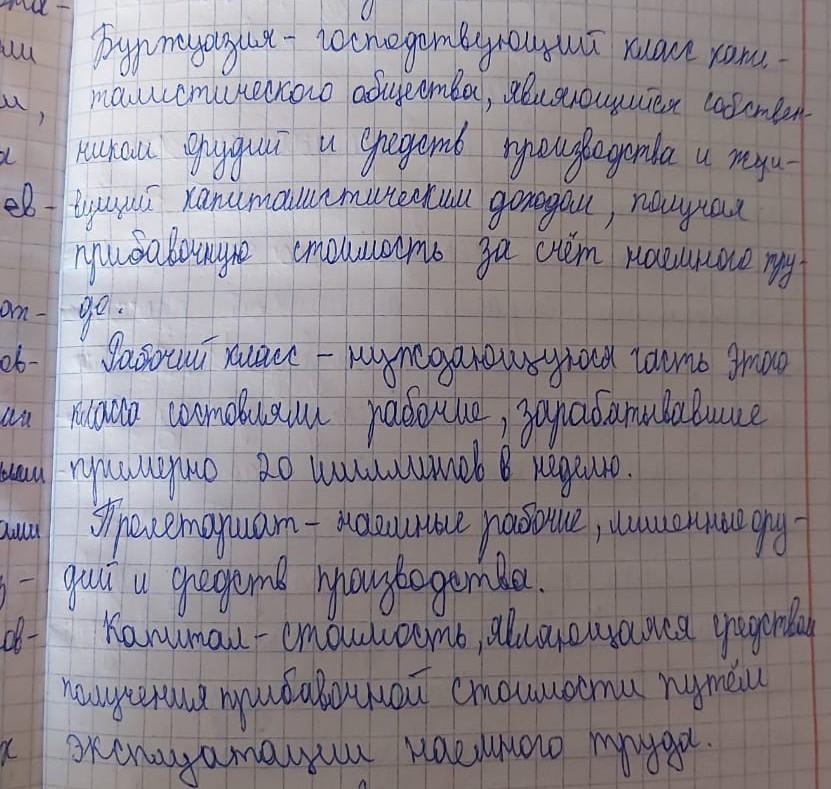 Буржуазия - господствующий класс капи-
ли
талистического общества, являющийся собствен-
и,
ником орудий и средств производства и жи-
ев-
вущий капиталистическим доходом, получая
прибавочную стоимость за счёт наемного тру-
от-
да.
ов-
Рабочий класс - нуждающуюся часть этого
класса составляли рабочие, зарабатывавшие
примерно 20 шиллингов в неделю.
ами
Пролетариат - наемные рабочие, лишенные ору-
дий и средств производства.
ов-
Капитал - стоимость, являющаяся средством
получения прибавочной стоимости путём
х
эксплуатации наемного труда.